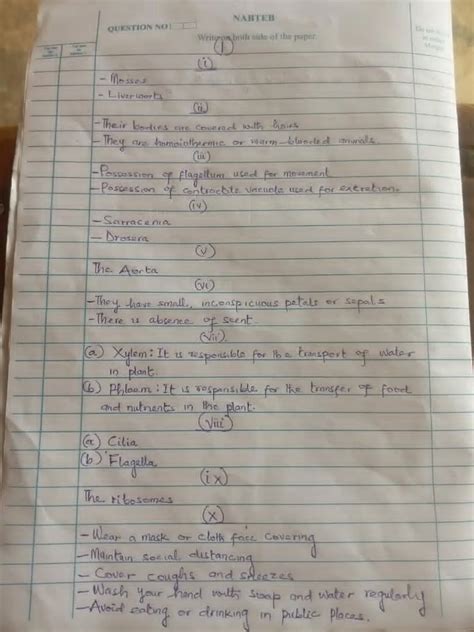 NABTEB
QUESTION NO: 1
Write on both side of the paper
1
(i)
- Mosses
- Liverworts
(ii)
- Their bodies are covered with hairs
- They are homoiothermic or warm-blooded animals.
(iii)
- Possession of flagellum used for movement
- Possession of contractile vacuole used for excretion.
(iv)
- Sarracenia
- Drosera
(v)
The Aorta
(vi)
- They have small, inconspicuous petals or sepals
- There is absence of scent
(vii)
(a) Xylem: It is responsible for the transport of water
in plant.
(b) Phloem: It is responsible for the transfer of food
and nutrients in the plant.
(viii)
(a) Cilia
(b) Flagella
(ix)
The ribosomes
(x)
- Wear a mask or cloth face covering
- Maintain social distancing
- Cover coughs and sneezes
- Wash your hand with soap and water regularly
- Avoid eating or drinking in public places.